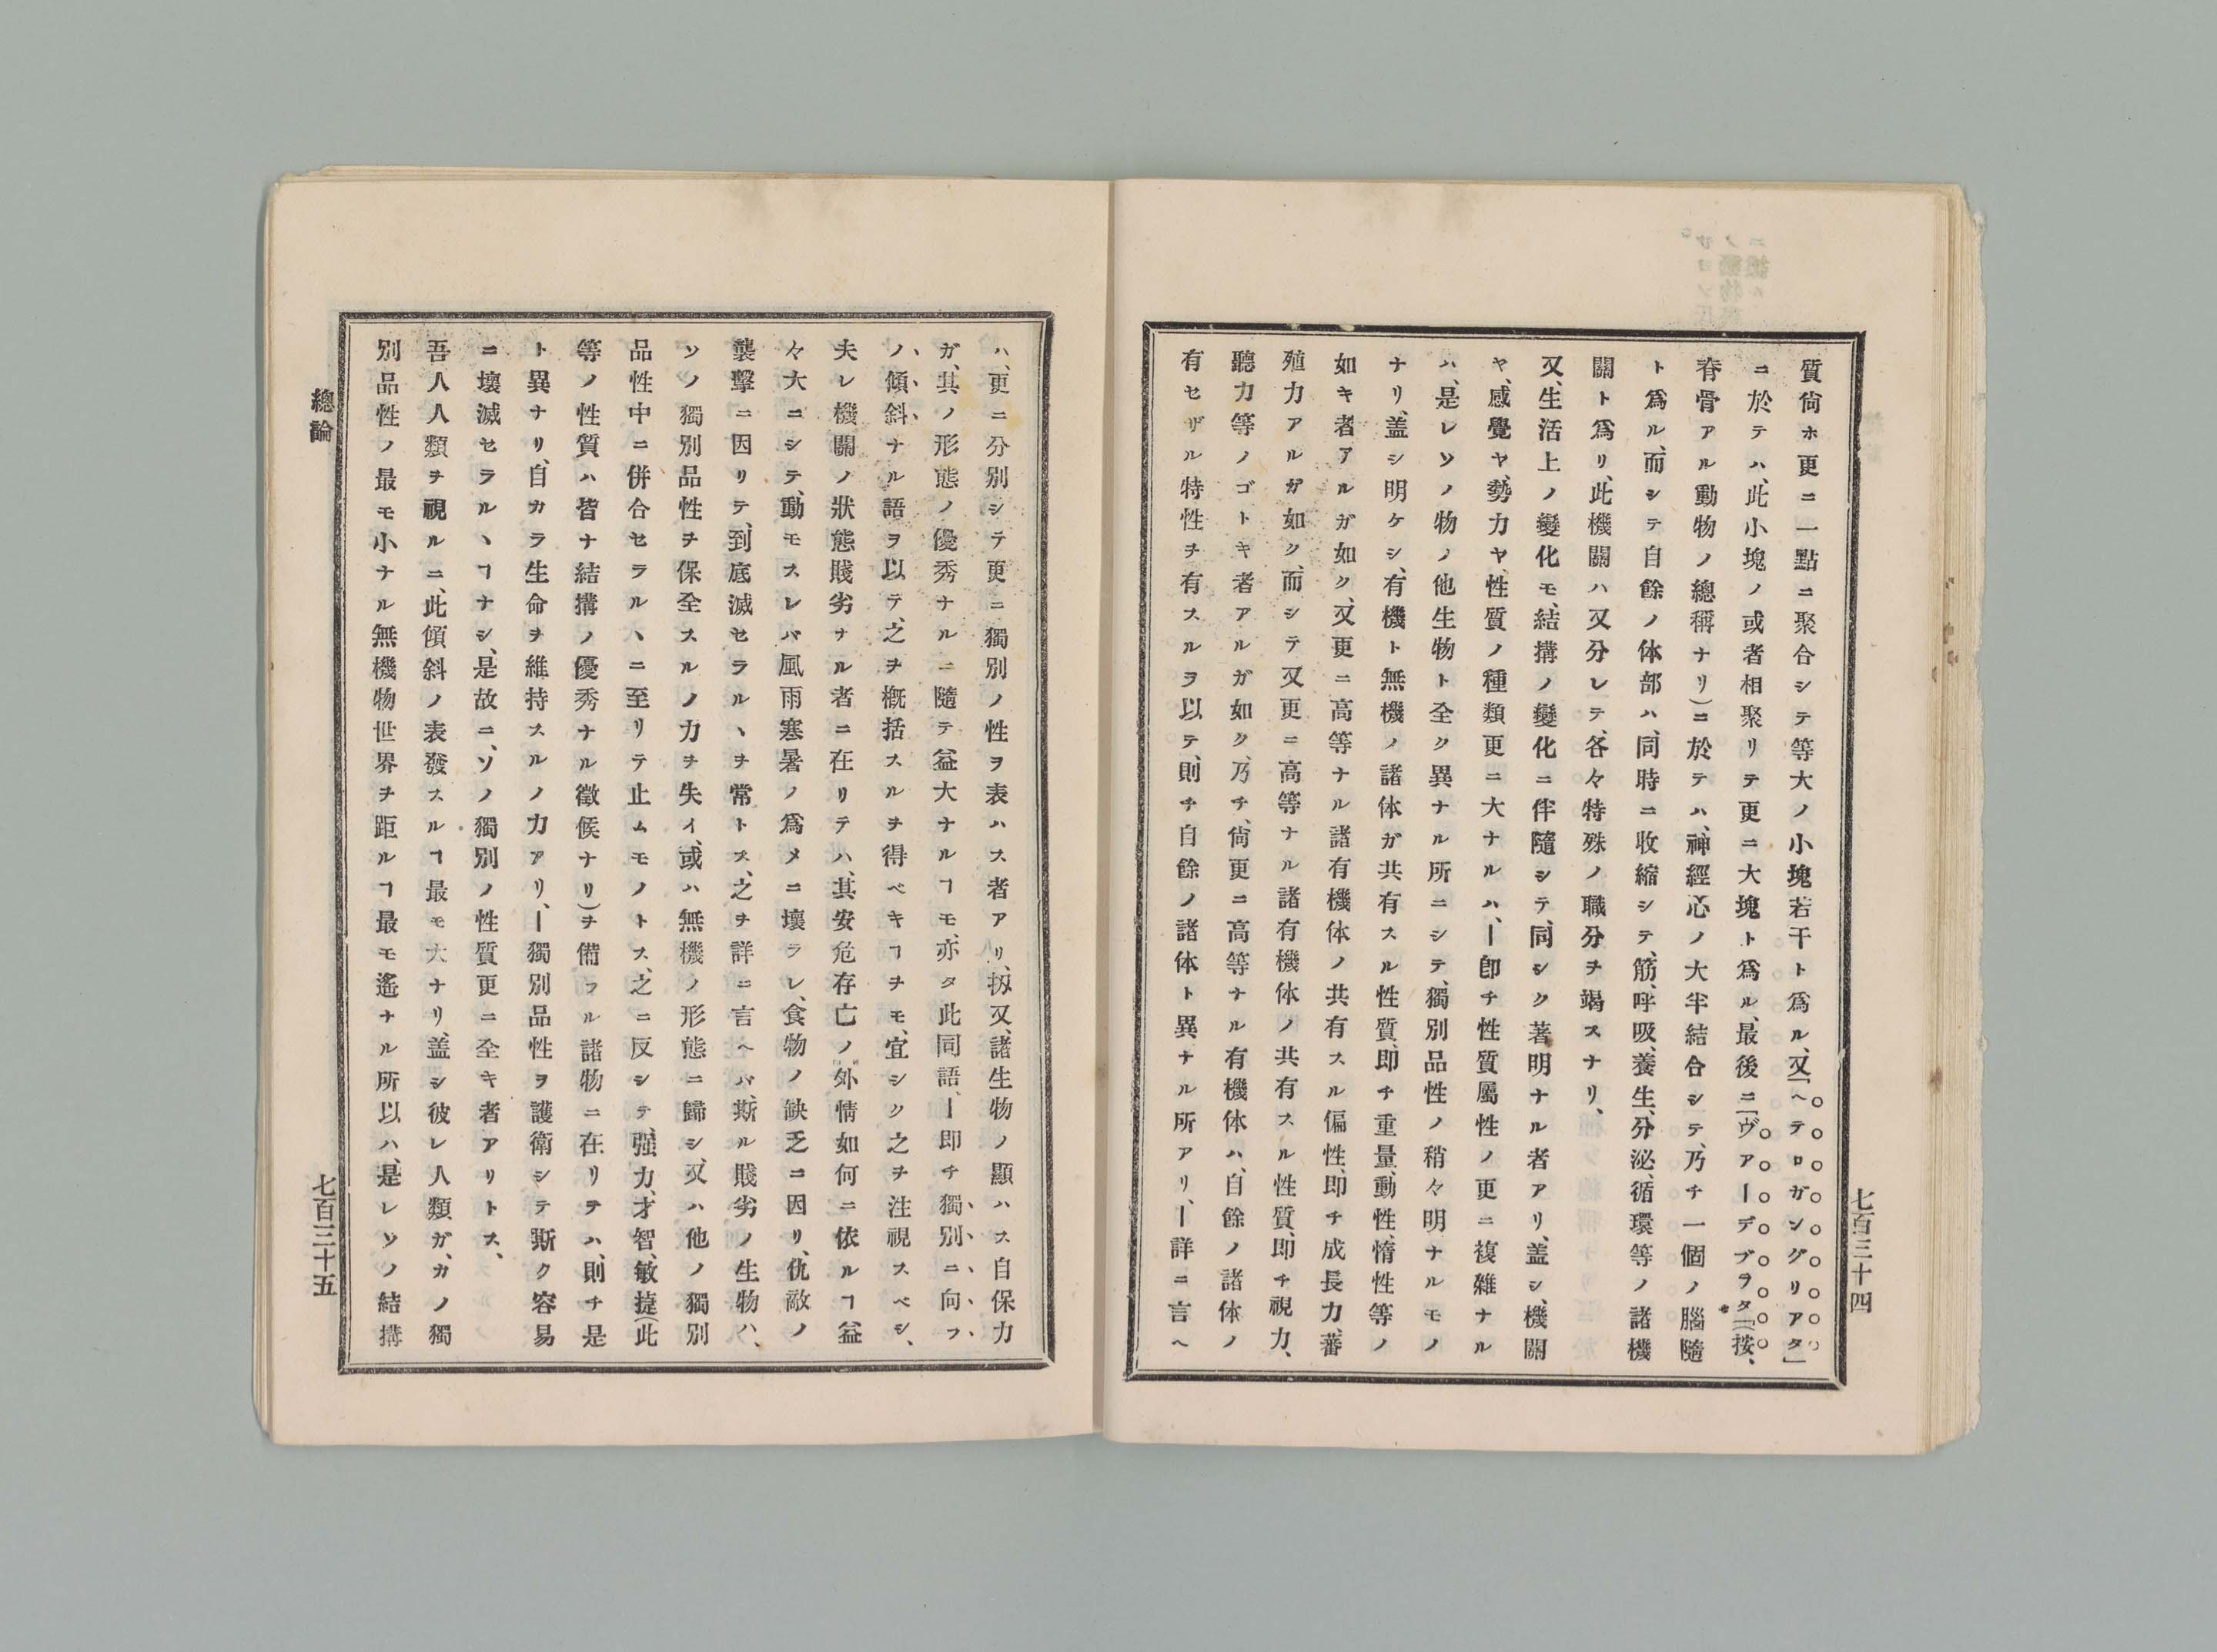 七百三十四
質尙ホ更ニ一點ニ聚合シテ等大ノ小塊若干ト爲ル、又「ヘテロガングリアタ」
ニ於テハ、此小塊ノ或者相聚リテ更ニ大塊ト爲ル、最後ニ「ヴアーテブラタ」(按、
脊骨アル動物ノ總稱ナリ)ニ於テハ、神經心ノ大半結合シテ、乃チ一個ノ腦隨
ト爲ル、而シテ自餘ノ体部ハ、同時ニ收縮シテ、筋、呼吸、養生、分泌、循環等ノ諸機
關ト爲リ、此機關ハ又分レテ、各々特殊ノ職分ヲ竭スナリ、
又、生活上ノ變化モ、結搆ノ變化ニ伴隨シテ、同シク著明ナル者アリ、盖シ、機關
ヤ、感覺ヤ、勢力ヤ、性質ノ種類更ニ大ナルハ、ー卽チ性質屬性ノ更ニ複雜ナル
ハ、是レソノ物ノ他生物ト全ク異ナル所ニシテ、獨別品性ノ稍々明ナルモノ
ナリ、盖シ明ケシ、有機ト無機ノ諸体ガ共有スル性質、即チ重量、動性、惰性等ノ
如キ者アルガ如ク、又更ニ高等ナル諸有機体ノ共有スル偏性、即チ成長力、蕃
殖力アルガ如ク、而シテ又更ニ高等ナル諸有機体ノ共有スル性質、即チ視力、
聽力等ノゴトキ者アルガ如ク、乃チ、尙更ニ高等ナル有機体ハ、自餘ノ諸体ノ
有セザル特性ヲ有スルヲ以テ、則チ自餘ノ諸体ト異ナル所アリ、ー詳ニ言ヘ
ハ、更ニ分別シテ更ニ獨別ノ性ヲ表ハス者アリ、扨又、諸生物ノ顯ハス自保力
ガ、其ノ形態ノ優秀ナルニ隨テ益大ナルヿモ、亦タ此同語、ー即チ獨別ニ向フ
ノ傾斜ナル語ヲ以テ、之ヲ槪括スルヲ得ベキヿヲモ、宜シク之ヲ注視スベシ、
夫レ機關ノ狀態賤劣ナル者ニ在リテハ、其安危存亡ノ外情如何ニ依ルヿ益
々大ニシテ、動モスレバ風雨寒暑ノ爲メニ壞ラレ、食物ノ缺乏ニ因リ、仇敵ノ
襲擊ニ因リテ、到底滅セラルヽヲ常トス、之ヲ詳ニ言ヘバ、斯ル賤劣ノ生物ハ、
ソノ獨別品性ヲ保全スルノ力ヲ失イ、或ハ無機ノ形態ニ歸シ、又ハ他ノ獨別
品性中ニ併合セラルヽニ至リテ止ムモノトス、之ニ反シテ、强力、才智、敏捷(此
等ノ性質ハ皆ナ結搆ノ優秀ナル徵候ナリ)ヲ備フル諸物ニ在リテハ、則チ是
ト異ナリ、自カラ生命ヲ維持スルノ力アリ、ー獨別品性ヲ護衛シテ斯ク容易
ニ壞滅セラルヽヿナシ、是故ニ、ソノ獨別ノ性質更ニ全キ者アリトス、
吾人人類ヲ視ルニ、此傾斜ノ表發スルヿ最モ大ナリ、盖シ彼レ人類ガ、カノ獨
別品性ノ最モ小ナル無機物世界ヲ距ルヿ最モ遙ナル所以ハ、是レソノ結搆
總論
七百三十五